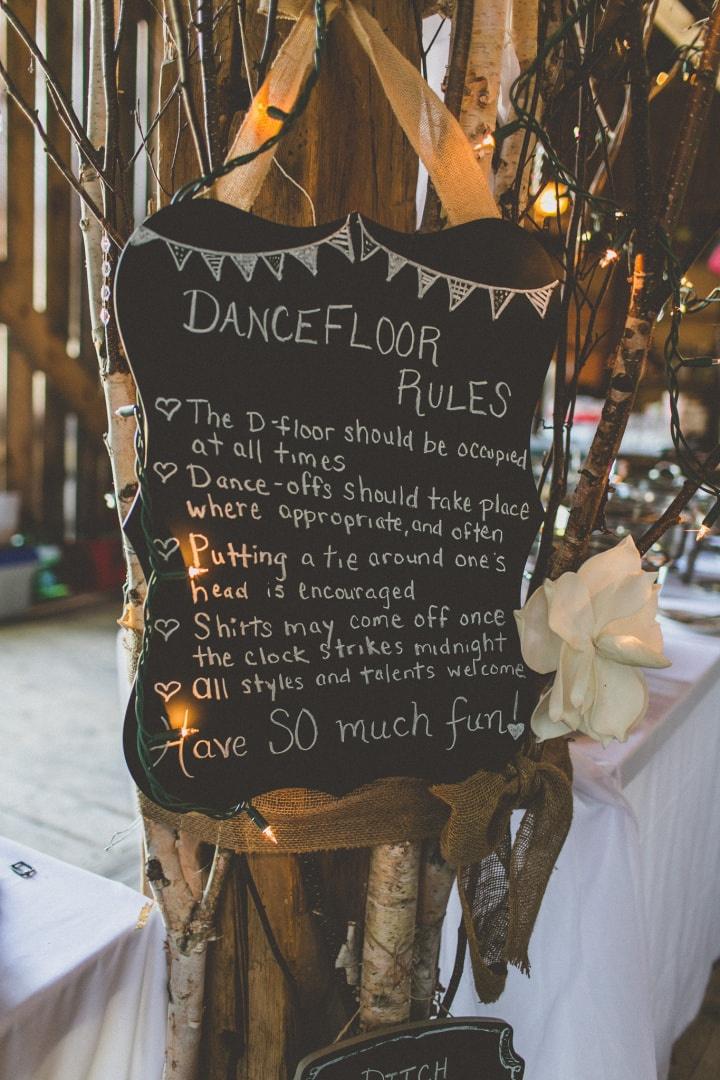 DANCEFLOOR
RULES
The D-floor should be occupied
at all times
Dance-offs should take place
where appropriate, and often
Putting a tie around one's
head is encouraged
Shirts may come off once
the clock strikes midnight
all styles and talents welcome
Have SO much fun!
DITCH